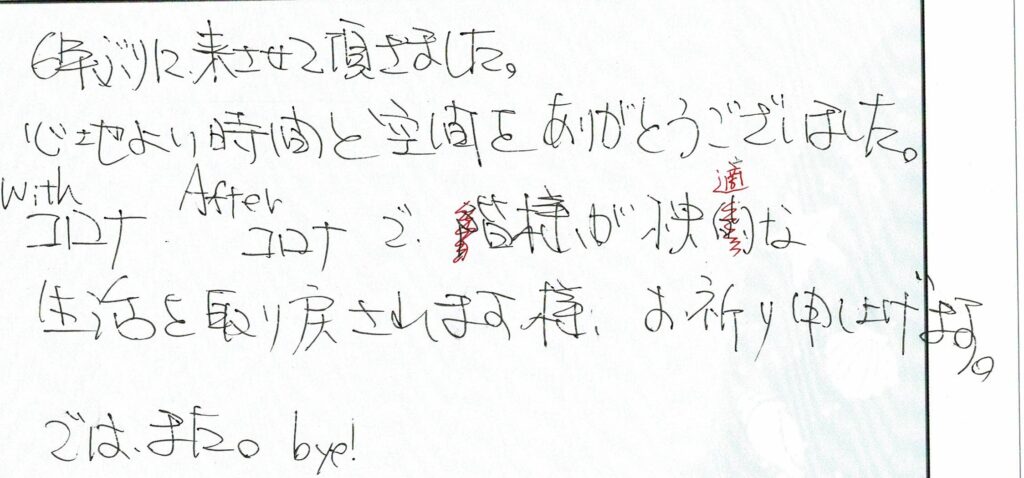 6年ぶりに来させて頂きました。
心地よい時間と空間をありがとうございました。
With After 適
コロナ コロナ で、皆様が快な
生活を取り戻されます様、お祈り申し上げます。
では、また。 bye!